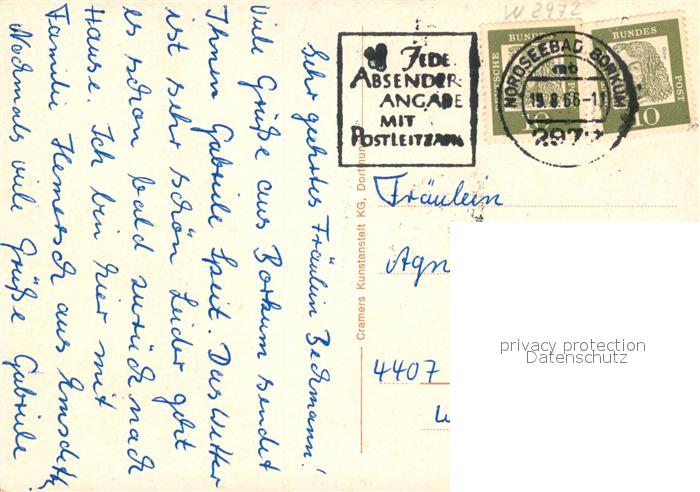 Sehr geehrtes Fräulein Beckmann!
Viele Grüße aus Borkum sendet
Ihnen Gabriele Speit. Das Wetter
ist sehr schön Leider geht
es schon bald zurück nach
Hause. Ich bin hier mit
Familie Hemersch aus Emsdett.
Nochmals viele Grüße Gabriele
Cramers Kunstanstalt KG, Dortmund
W 2972
JEDE
ABSENDER-
ANGABE
MIT
POSTLEITZAHL
NORDSEEBAD BORKUM
15.8.66-11
297
DEUTSCHE BUNDES POST
10
BUNDES POST
10
Fräulein
Agn
4407
privacy protection
Datenschutz